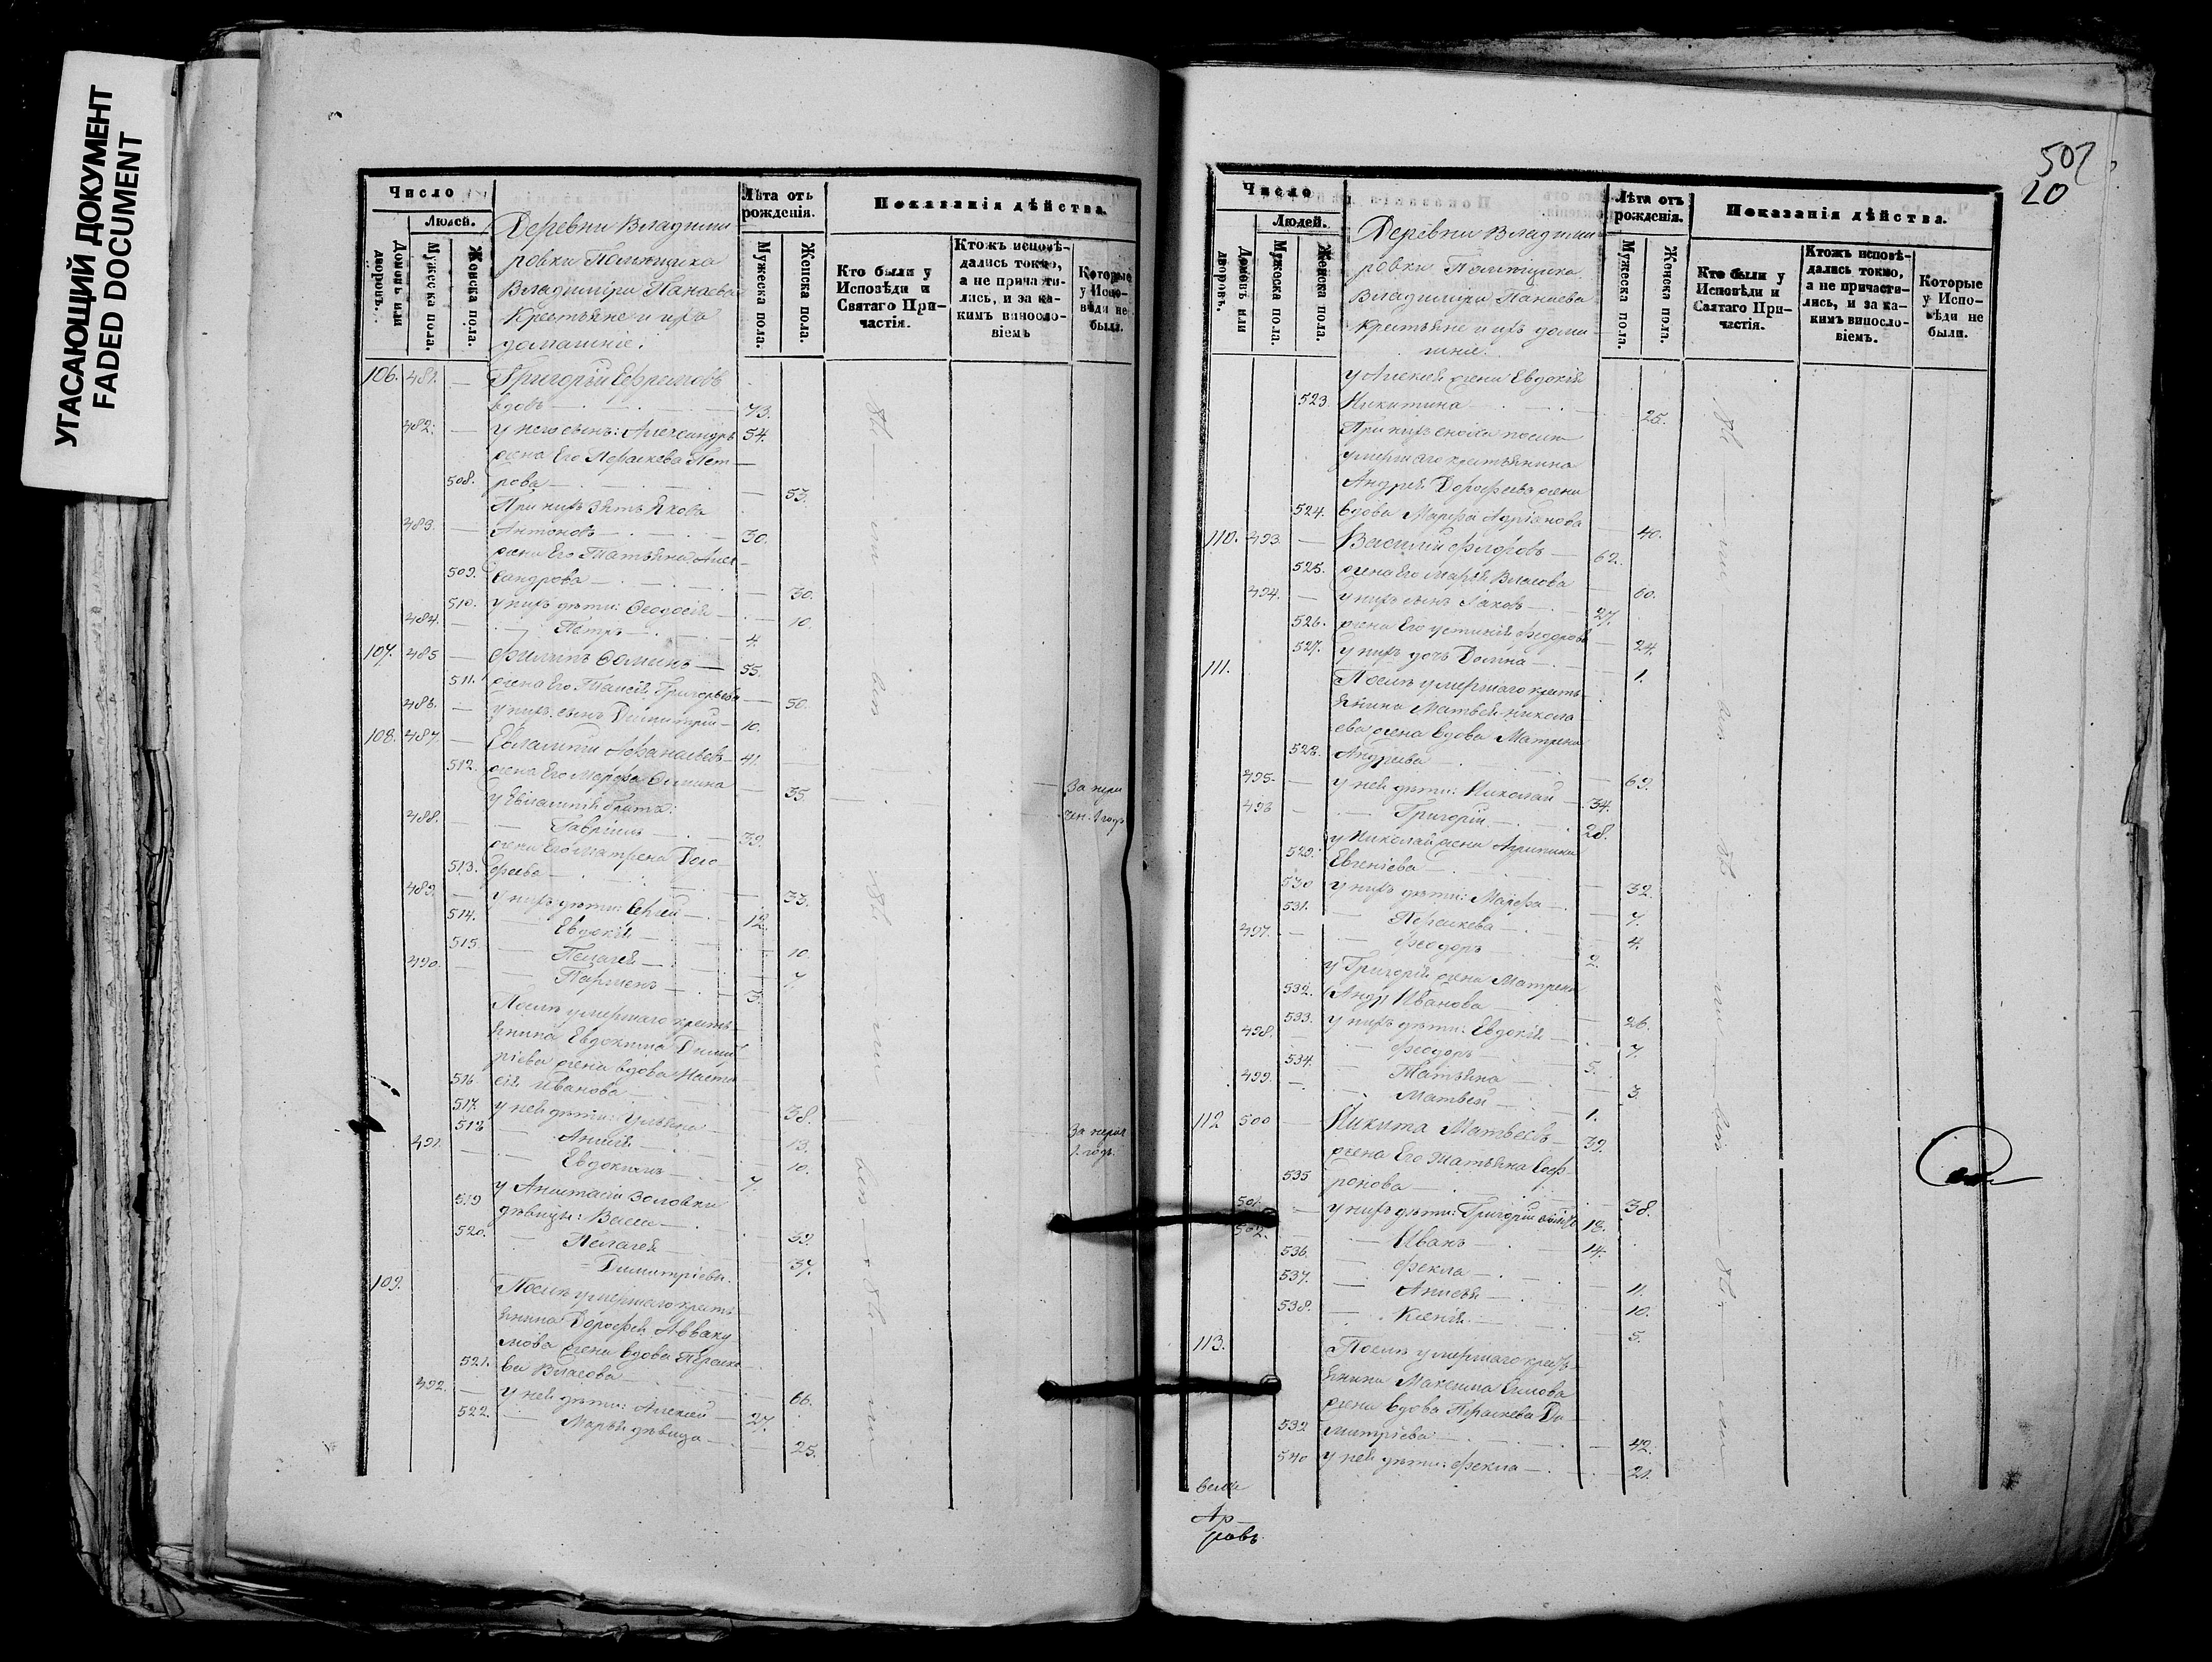 УГАСАЮЩИЙ ДОКУМЕНТ
FADED DOCUMENT
Число
Людей.
Домовъ или дворовъ.
Мужеска пола.
Женска пола.
Деревни Владими
ровки Помѣщика
Владиміра Панаева
Крестьяне и ихъ
домашніе.
Лѣта отъ рожденія.
Мужеска пола.
Женска пола.
Показанія дѣйства.
Кто были у Исповѣди и Святаго Причастія.
Ктожъ исповѣдались токмо, а не причастились, и за какимъ винословіемъ
Которые у Исповѣди не были.
106. 481. — Григорій Ефремовъ
вдовъ — 73.
482. — у него сынъ: Александръ 54.
жена Его Параскева Пет
508. рова — 53.
При нихъ зять Яковъ
483. — Антоновъ — 30.
жена Его Татьяна Алек
509. сандрова — 30.
510. у нихъ дѣти: Феодосія — 10.
484. — Петръ — 4.
107. 485 — Филиппъ Фоминъ — 55.
511. жена Его Таисія Григорьева — 50.
486. — у нихъ сынъ Димитрій — 10.
108. 487. — Евлампій Афанасьевъ — 41.
512. жена Его Марфа Фомина — 35.
у Евлампія братъ:
488. — Гавріилъ — 39.
жена Его Матрена Доро
513. феева — 33.
489. — у нихъ дѣти: Сергей — 12.
514. — Евдокія — 10.
515. — Пелагея — 7.
490. — Парменъ — 3.
Послѣ умершаго кресть
янина Евдокима Димит
ріева жена вдова Наста
516. сія Иванова — 38.
517. у ней дѣти: Ульяна — 13.
518 — Анна — 10.
491. — Евдокимъ — 7.
у Анастасіи золовки
519 дѣвицы: Васса — 39.
520. — Пелагея — 37.
— Димитріевы.
109. Послѣ умершаго кресть
янина Дорофея Авваку
мова жена вдова Параске
521. ва Власова — 66.
492. — у ней дѣти: Алексей — 27.
522. — Марья дѣвица — 25.
За нерач
1 годъ
502
20
Число
Людей.
Домовъ или дворовъ.
Мужеска пола.
Женска пола.
Деревни Владими
ровки Помѣщика
Владиміра Панаева
Крестьяне и ихъ дома
шніе.
Лѣта отъ рожденія.
Мужеска пола.
Женска пола.
Показанія дѣйства.
Кто были у Исповѣди и Святаго Причастія.
Ктожъ исповѣдались токмо, а не причастились, и за какимъ винословіемъ.
Которые у Исповѣди не были.
у Алексея жена Евдокія
523. Никитина — 25.
При нихъ сноха послѣ
умершаго крестьянина
Андрея Дорофеева жена
524. вдова Марфа Адріанова — 40.
110. 493. — Василій Флоровъ — 62.
525. жена Его Марья Власова — 60.
494. — у нихъ сынъ Яковъ — 27.
526. жена Его Устинія Федорова — 24.
527. у нихъ дочь Домна — 1.
111. Послѣ умершаго кресть
янина Матвея Никола
ева жена вдова Матрена
528. Андреева — 69.
495. — у ней дѣти: Николай — 34.
496 — Григорій — 28.
у Николая жена Агрипина
529. Евгеніева — 32.
530 у нихъ дѣти: Марфа — 7.
531. Параскева — 4.
497. — Феодоръ — 2.
у Григорія жена Матрена
532. Иванова — 26.
533. у нихъ дѣти: Евдокія — 7.
498. — Феодоръ — 5.
534. — Татьяна — 3.
499. — Матвей — 1.
112 500 — Никита Матвеевъ — 39.
жена Его Татьяна Соф
535 ронова — 38.
501. — у нихъ дѣти: Григорій 18.
502. — Иванъ — 14.
536. — Фекла — 11.
537. — Анисья — 10.
538. — Ксенія — 5.
113. Послѣ умершаго кресть
янина Максима
жена вдова Параскева Ди
539 митріева — 42.
540 у ней дѣти: Фекла — 21.